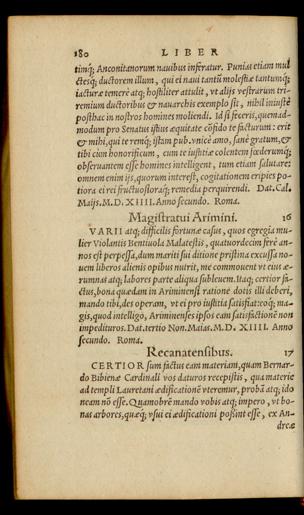 180 LIBER
timq́; Anconitanorum nauibus inferatur. Punias etiam mul
ctesq́; ductorem illum, qui ei naui tantū molestiæ tantumq́;
iacturæ temerè atq́; hostiliter attulit, vt alijs vestrarum tri-
remium ductoribus & nauarchis exemplo sit, nihil iniustè
posthac in nostros homines moliendi. Id si feceris, quemad-
modum pro Senatus istius æquitate cōfido te facturum: erit
& mihi, qui te remq́; istam pub. vnicè amo, sanè gratum, &
tibi cùm honorificum, cum te iustitiæ colentem fœderumq́;
obseruantem esse homines intelligent, tum etiam salutare:
omnem enim ijs, quorum interest, cogitationem eripies po-
tiora ei rei fructuosioraq́; remedia perquirendi. Dat. Cal.
Maijs. M.D. XIIII. Anno secundo. Roma.
Magistratui Arimini. 16
VARII atq; difficilis fortunæ casus, quos egregia mu-
lier Violantis Bentiuola Malatestis, quatuordecim ferè an-
nos est perpessa, dum mariti sui ditione pristina excussa no-
uem liberos alienis opibus nutrit, me commouent vt eius æ-
rumnas atq; labores parte aliqua subleuem. Itaq; certior fa-
ctus, bona quædam in Ariminensi ratione dotis illi deberi,
mando tibi, des operam, vt ei pro iustitia satisfiat: eoq́; ma-
gis, quod intelligo, Ariminenses ipsos eam satisfactionē non
impedituros. Dat. tertio Non. Maias. M.D. XIIII. Anno
secundo. Roma.
Recanatensibus. 17
CERTIOR sum factus eam materiam, quam Bernar-
do Bibienæ Cardinali vos daturos recepistis, qua materie
ad templi Lauretani ædificationē vteremur, probā atq; ido
neam nō esse. Quamobrē mando vobis atq; impero, vt bo-
nas arbores, quæq́; vsui ei ædificationi possint esse, ex An-
dreæ